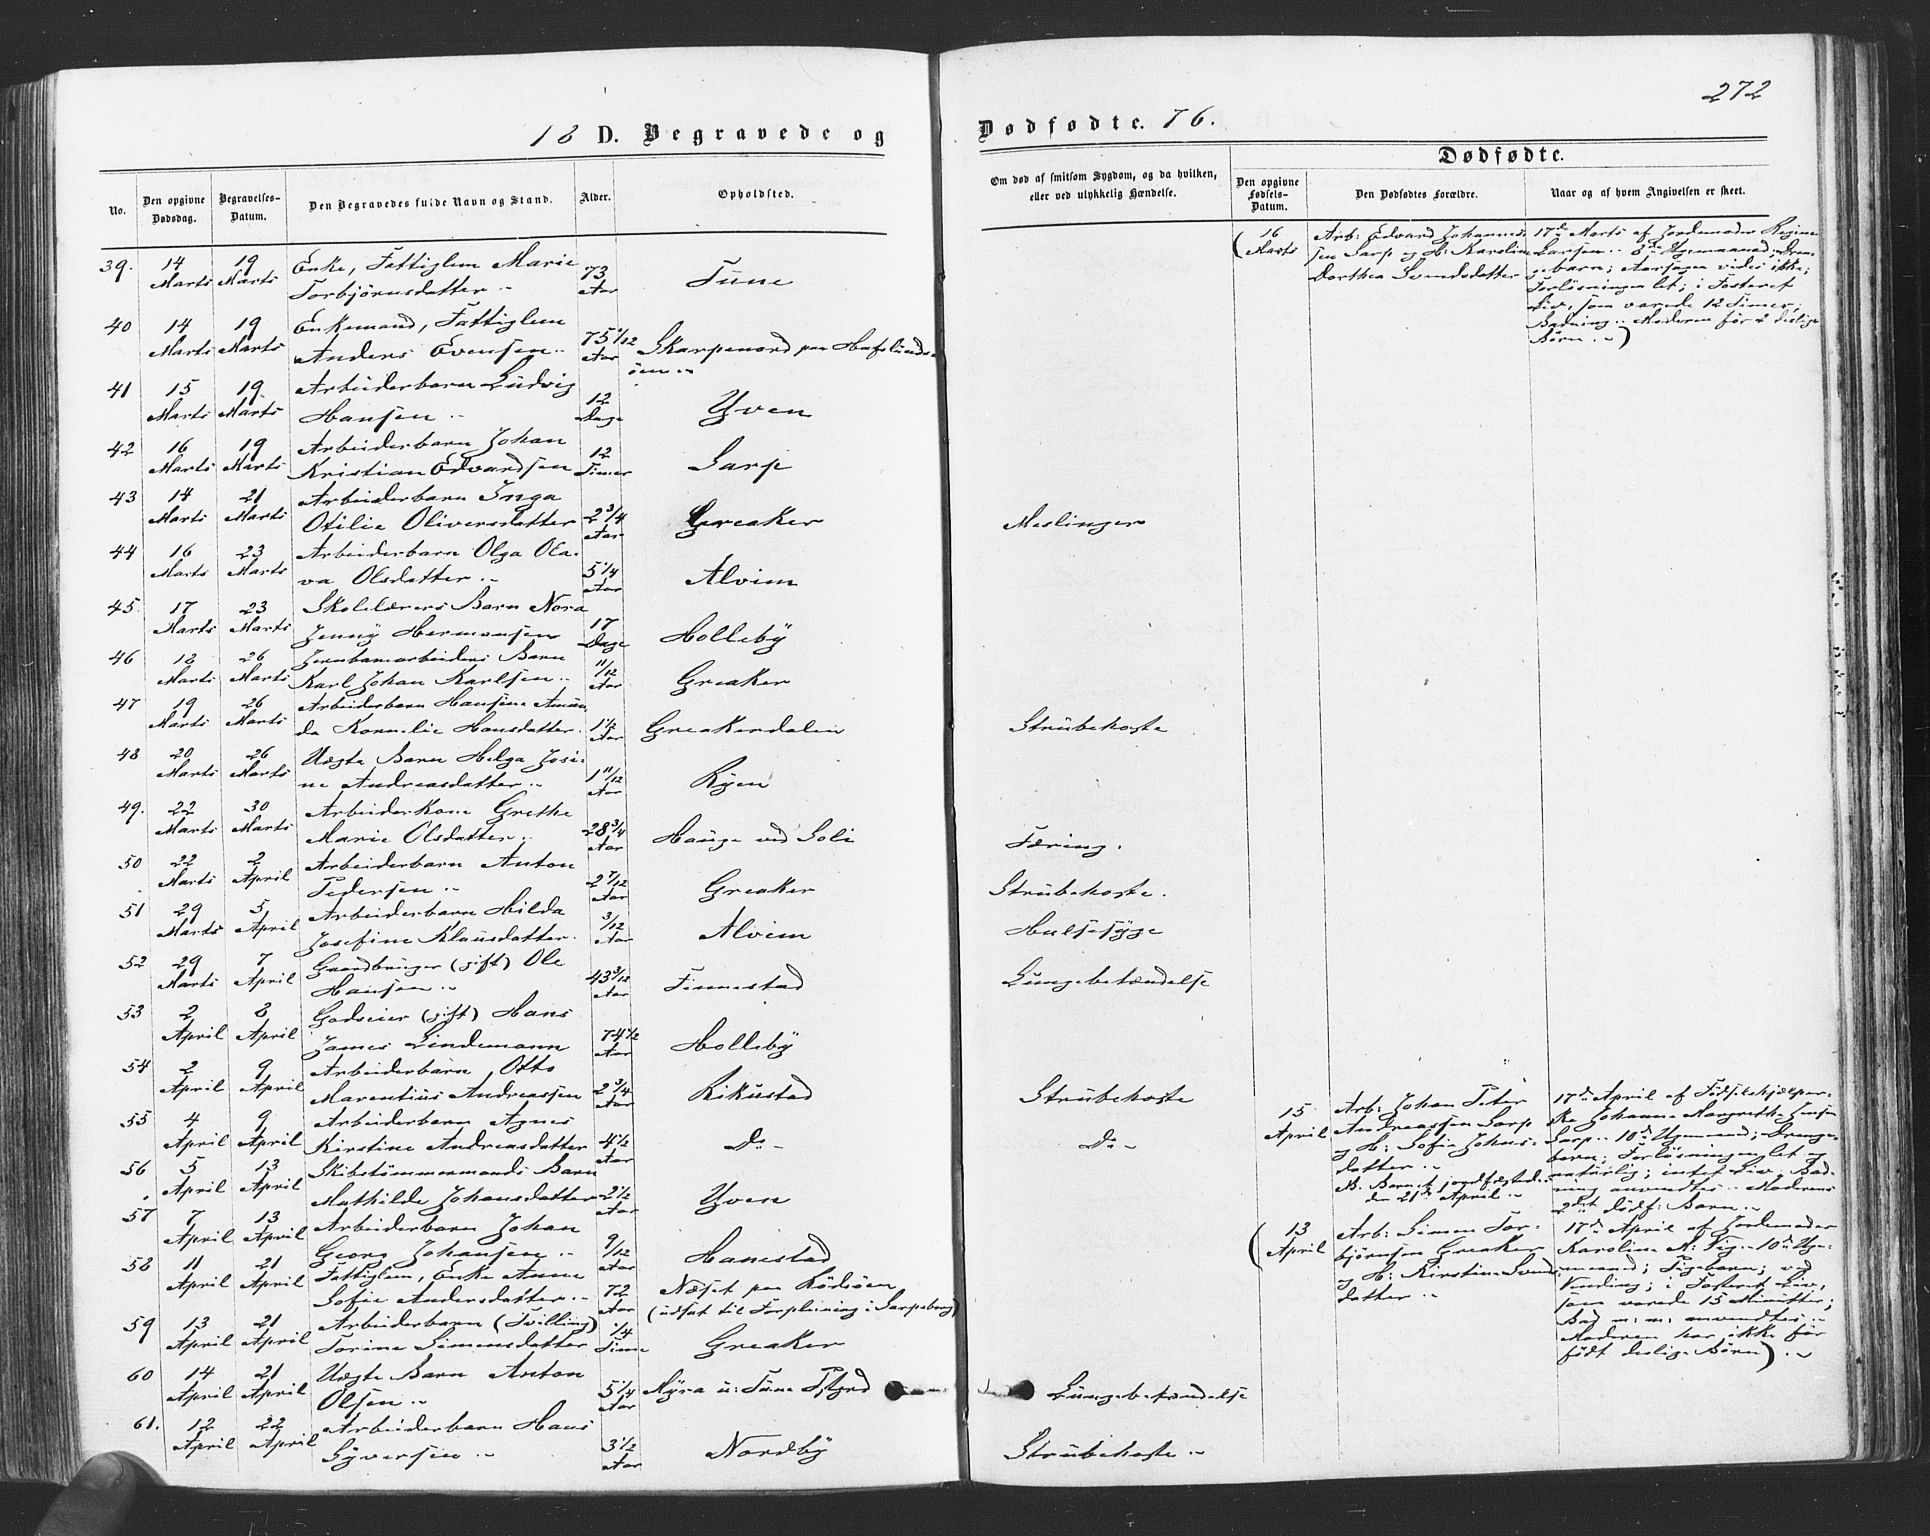 272
18 D. Begravede og Dødfødte. 76.
No.
Den opgivne Dødsdag.
Begravelses-Datum.
Den Begravedes fulde Navn og Stand.
Alder.
Opholdsted.
Om død af smitsom Sygdom, og da hvilken, eller ved ulykkelig Hændelse.
Dødfødte.
Den opgivne Fødsels-Datum.
Den Dødfødtes Forældre.
Naar og af hvem Angivelsen er skeet.
39. 14 Marts 19 Marts Enke, Fattiglem Marie
Torbjørnsdatter 73 Aar Tune
40 14 Marts 19 Marts Enkemand, Fattiglem
Anders Evensen 75 1/12 Aar Skarpenord paa Hafslunds-
øen
41 15 Marts 19 Marts Arbeiderbarn Ludvig
Hansen 12 Dage Yven
42 16 Marts 19 Marts Arbeiderbarn Johan
Kristian Edvardsen 12 Timer Sarp
43 14 Marts 21 Marts Arbeiderbarn Inga
Otilie Oliversdatter 2 3/4 Aar Greaker Meslinger
44 16 Marts 23 Marts Arbeiderbarn Olga Ola-
va Olsdatter 5 1/4 Aar Alvim
45. 17 Marts 23 Marts Skolelærers Barn Nora
Jenny Hermansen 17 Dage Holleby
46 18 Marts 26 Marts Jernbanearbeiders Barn
Karl Johan Karlsen 11/12 Aar Greaker
47 19 Marts 26 Marts Arbeiderbarn Hansine Aman-
da Kornelie Hansdatter 1 1/2 Aar Greakerdalen Strubehoste
48 20 Marts 26 Marts Uægte Barn Helga Josi-
ne Andreasdatter 1 11/12 Aar Ryen
49. 22 Marts 30 Marts Arbeiderkone Grethe
Marie Olsdatter 28 3/4 Aar Hauge ved Soli Tæring.
50 22 Marts 2 April Arbeiderbarn Anton
Pedersen 2 7/12 Aar Greaker Strubehoste.
51 29 Marts 5 April Arbeiderbarn Hilda
Josefine Klausdatter 3/12 Aar Alvim Halssyge
52 29 Marts 7 April Gaardbruger (gift) Ole
Hansen 43 3/12 Aar Finnestad Lungebetændelse
53 2 April 8 April Godseier (gift) Hans
James Lindemann 74 1/2 Aar Holleby
54 2 April 9 April Arbeiderbarn Otto
Marentius Andreassen 2 3/4 Aar Rikustad Strubehoste
55 4 April 9 April Arbeiderbarn Agnes
Kirstine Andreasdatter 4 1/2 Aar Do Do
56 5 April 13 April Skibstømmermands Barn
Mathilde Johansdatter 2 1/2 Aar Yven
57 7 April 13 April Arbeiderbarn Johan
Georg Johansen 9/12 Aar Hanestad
58 11 April 21 April Fattiglem, Enke Anne
Sofie Andersdatter 72 Aar Næset paa Rolsøen
(udsat til Forpleining i Sarpsborg)
59 13 April 21 April Arbeiderbarn (Tvilling)
Torine Simensdatter 1/4 Time Greaker
60 14 April 21 April Uægte Barn Anton
Olsen 5 1/4 Aar Myra u: Tune Pstgrd Lungebetændelse
61. 12 April 22 April Arbeiderbarn Hans
Syversen 3 1/2 Aar Nordby Strubehoste
(16 Marts
Arb: Edvard Johannes-
sen Sarp og H: Karoline
Dorthea Svendsdatter
17de Marts af Jordemoder Regine
Larsen 8de Ugemaaned; Dren-
gebarn; Aarsagen vides ikke;
Forløsningen let; i Fosteret
Liv, som varede 12 Timer;
Badning. Moderen før 2 deslige
Børn.)
15 April
Arb: Johan Peter
Andreassen Sarp
og H: Sofie Johns-
datter
NB. Barnet jordfæstedes
den 21de April
17de April af Fødselshjælper-
ske Johanne Margrethe Jensen
Sarp 10de Ugemaaned; Drenge-
barn; Forløsningen let og
naturlig; intet Liv. Bad-
ning anvendtes. Moderens
2det dødf: Barn.
(13 April
Arb: Simen Tor-
bjørnsen Greaker
og H: Kirstine Svends-
datter
17de April af Jordemoder
Karoline A: Vig. 10de Uge-
maaned; Pigebarn; ved
Vending; i Fosteret Liv,
som varede 15 Minutter;
Bad m: m: anvendtes.
Moderen har ikke før
født deslige Børn).